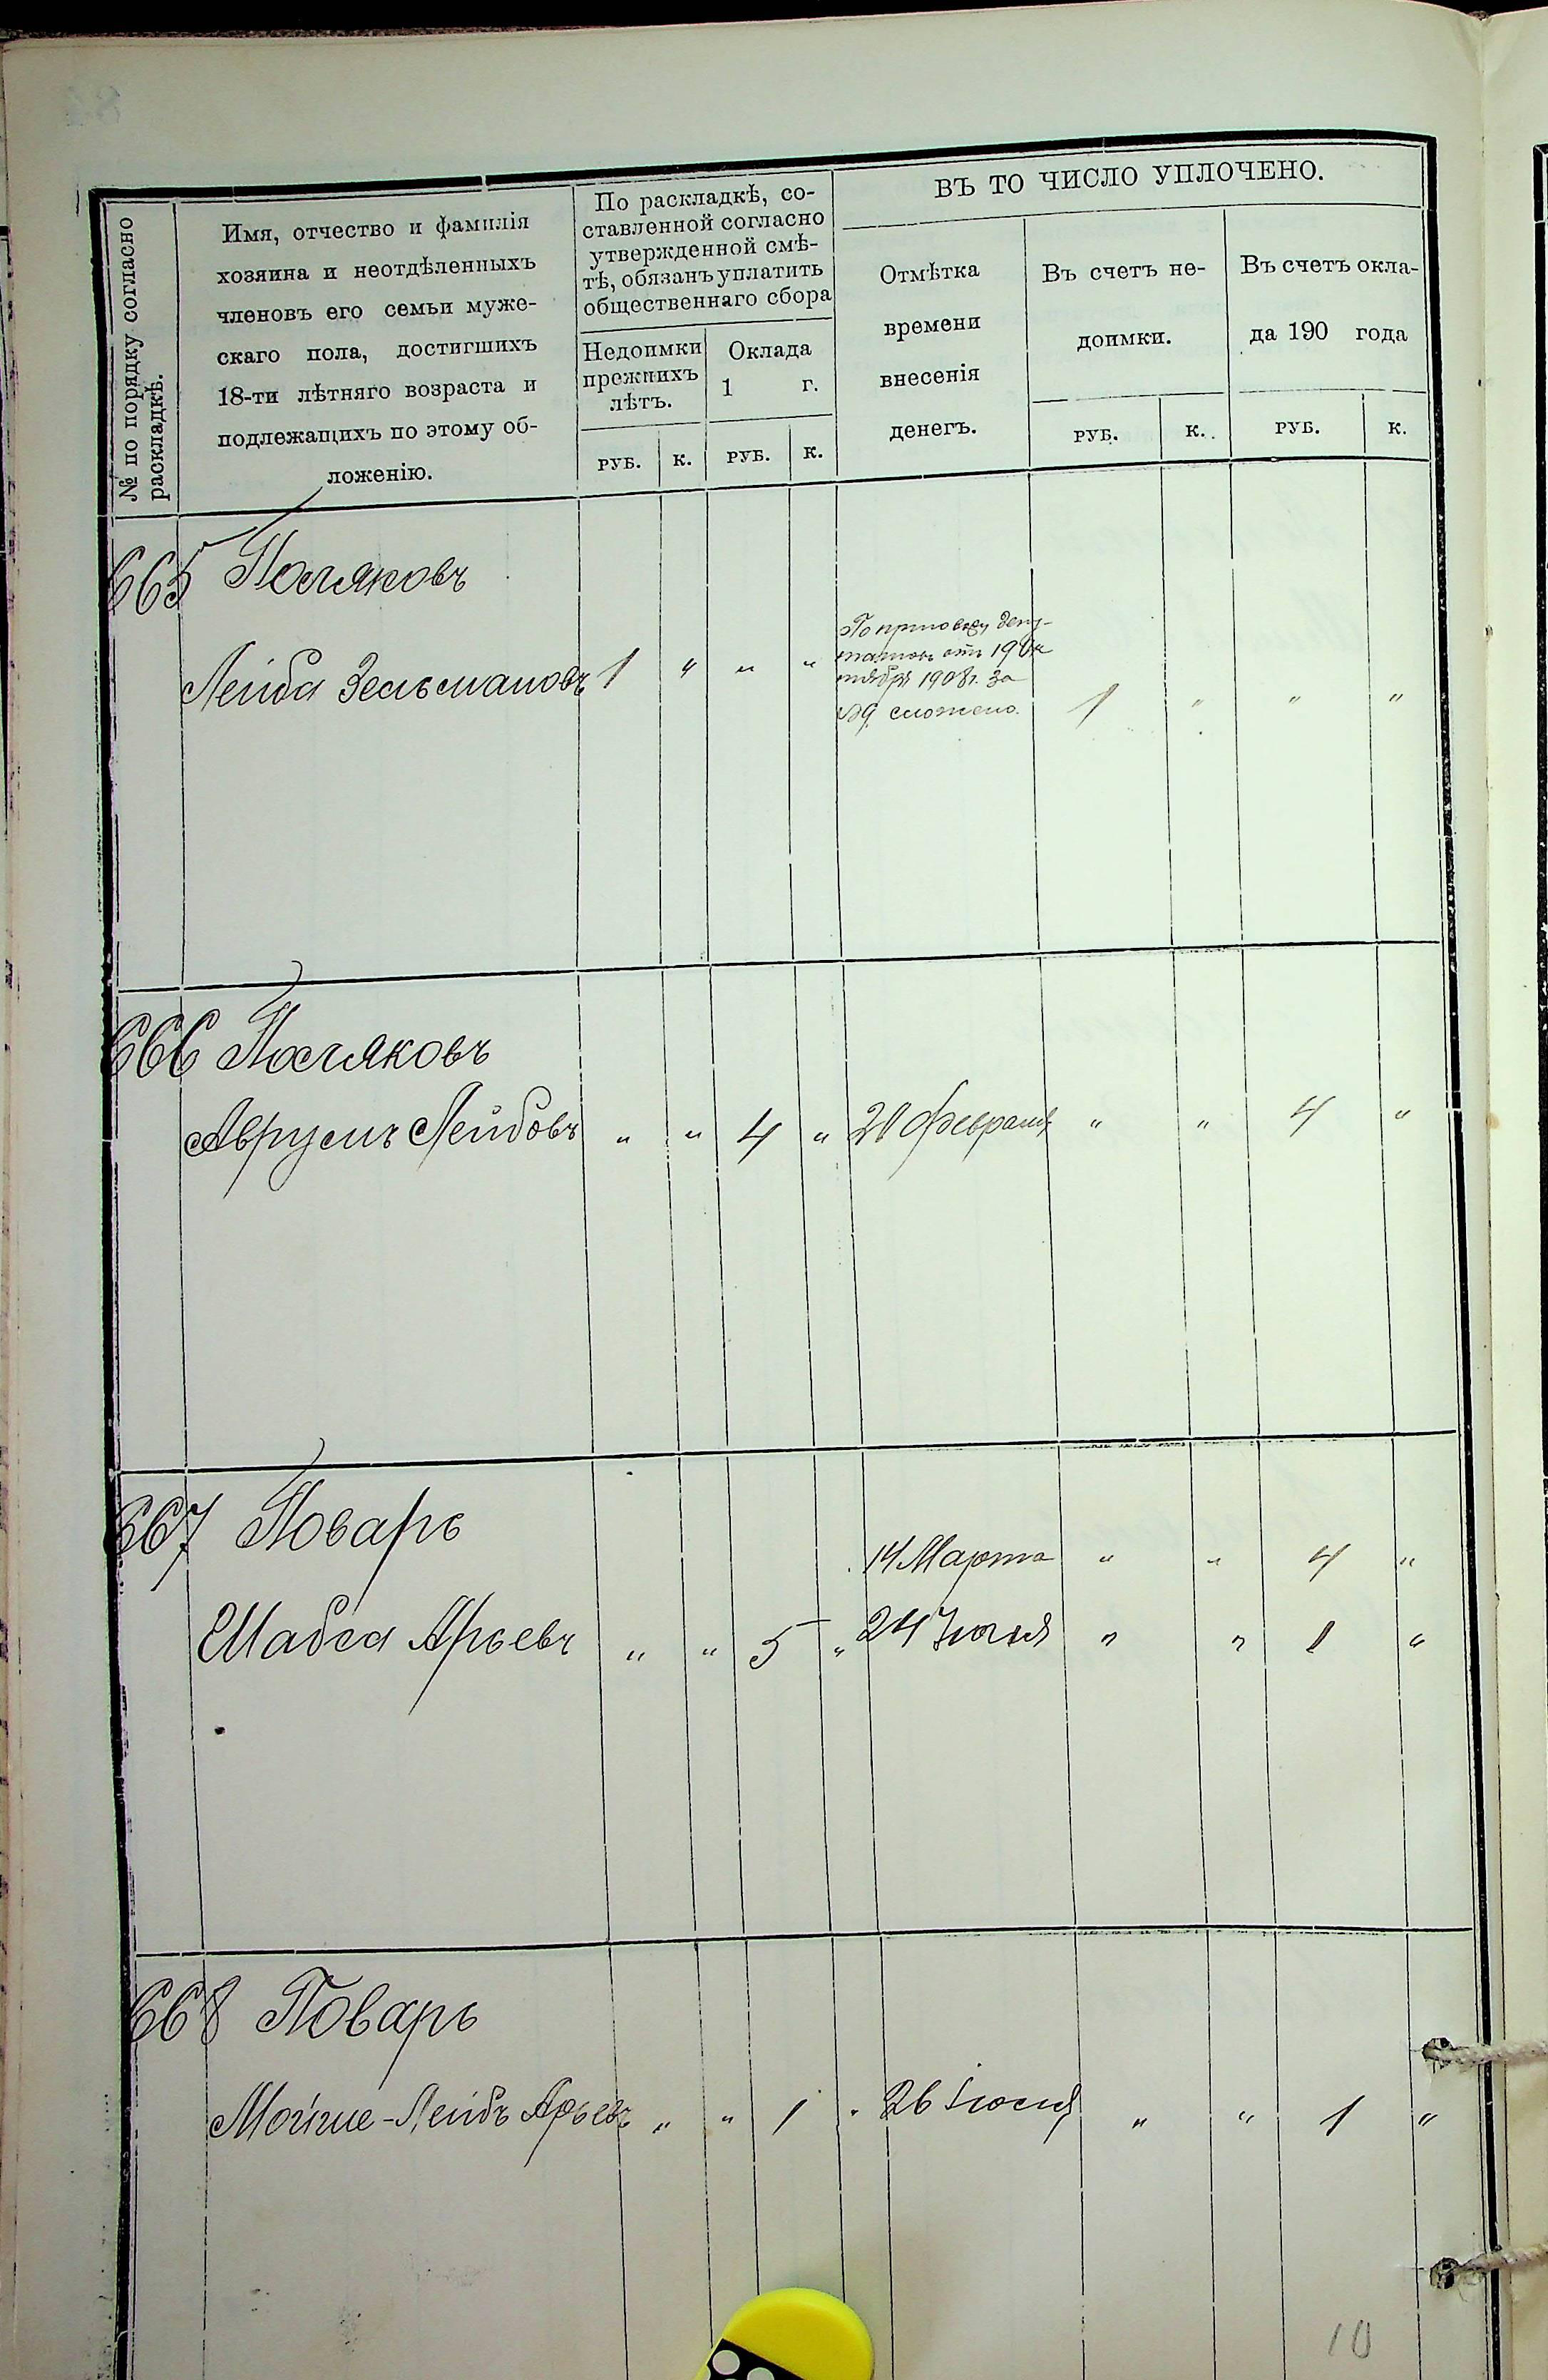 № по порядку согласно
раскладкѣ.
Имя, отчество и фамилія
хозяина и неотдѣленныхъ
членовъ его семьи муже-
скаго пола, достигшихъ
18-ти лѣтняго возраста и
подлежащихъ по этому об-
ложенію.
По раскладкѣ, со-
ставленной согласно
утвержденной смѣ-
тѣ, обязанъ уплатить
общественнаго сбора
Недоимки
прежнихъ
лѣтъ.
Оклада
1 г.
РУБ. К. РУБ. К.
ВЪ ТО ЧИСЛО УПЛОЧЕНО.
Отмѣтка
времени
внесенія
денегъ.
Въ счетъ не-
доимки.
РУБ. К.
Въ счетъ окла-
да 190 года
РУБ. К.
665 Поляковъ
Лейба Зельмановъ 1 " " "
По приговору депу-
татовъ отъ 19 Ок
тября 1908 г. за
№9 сложено. 1 " " "
666 Поляковъ
Аврумъ Лейбовъ " " 4 " 20 Февраля " " 4 "
667 Поваръ
14 Марта " " 4 "
Шабса Арьевъ " " 5 " 24 Іюля " " 1 "
668 Поваръ
Мойше-Лейбъ Арьевъ " " 1 " 26 Іюля " " 1 "
10